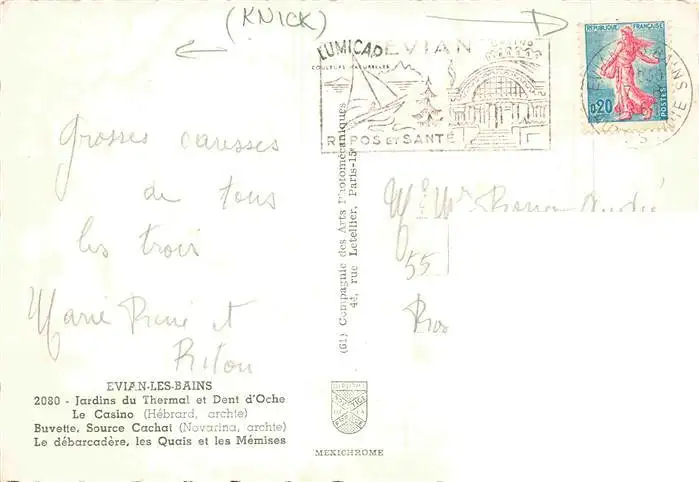 (KNICK)
LUMICAP
COULEURS NATURELLES
EVIAN
REPOS ET SANTÉ
REPUBLIQUE FRANÇAISE
0,20
POSTES
Grosses caresses
de tous
les trois
Marie René et
Riton
M. Mme André
55
EVIAN-LES-BAINS
2080 - Jardins du Thermal et Dent d'Oche
Le Casino (Hébrard, archte)
Buvette, Source Cachat (Novarina, archte)
Le débarcadère, les Quais et les Mémises
(61) Compagnie des Arts Photomécaniques
44, rue Letellier, Paris-15e
MEXICHROME